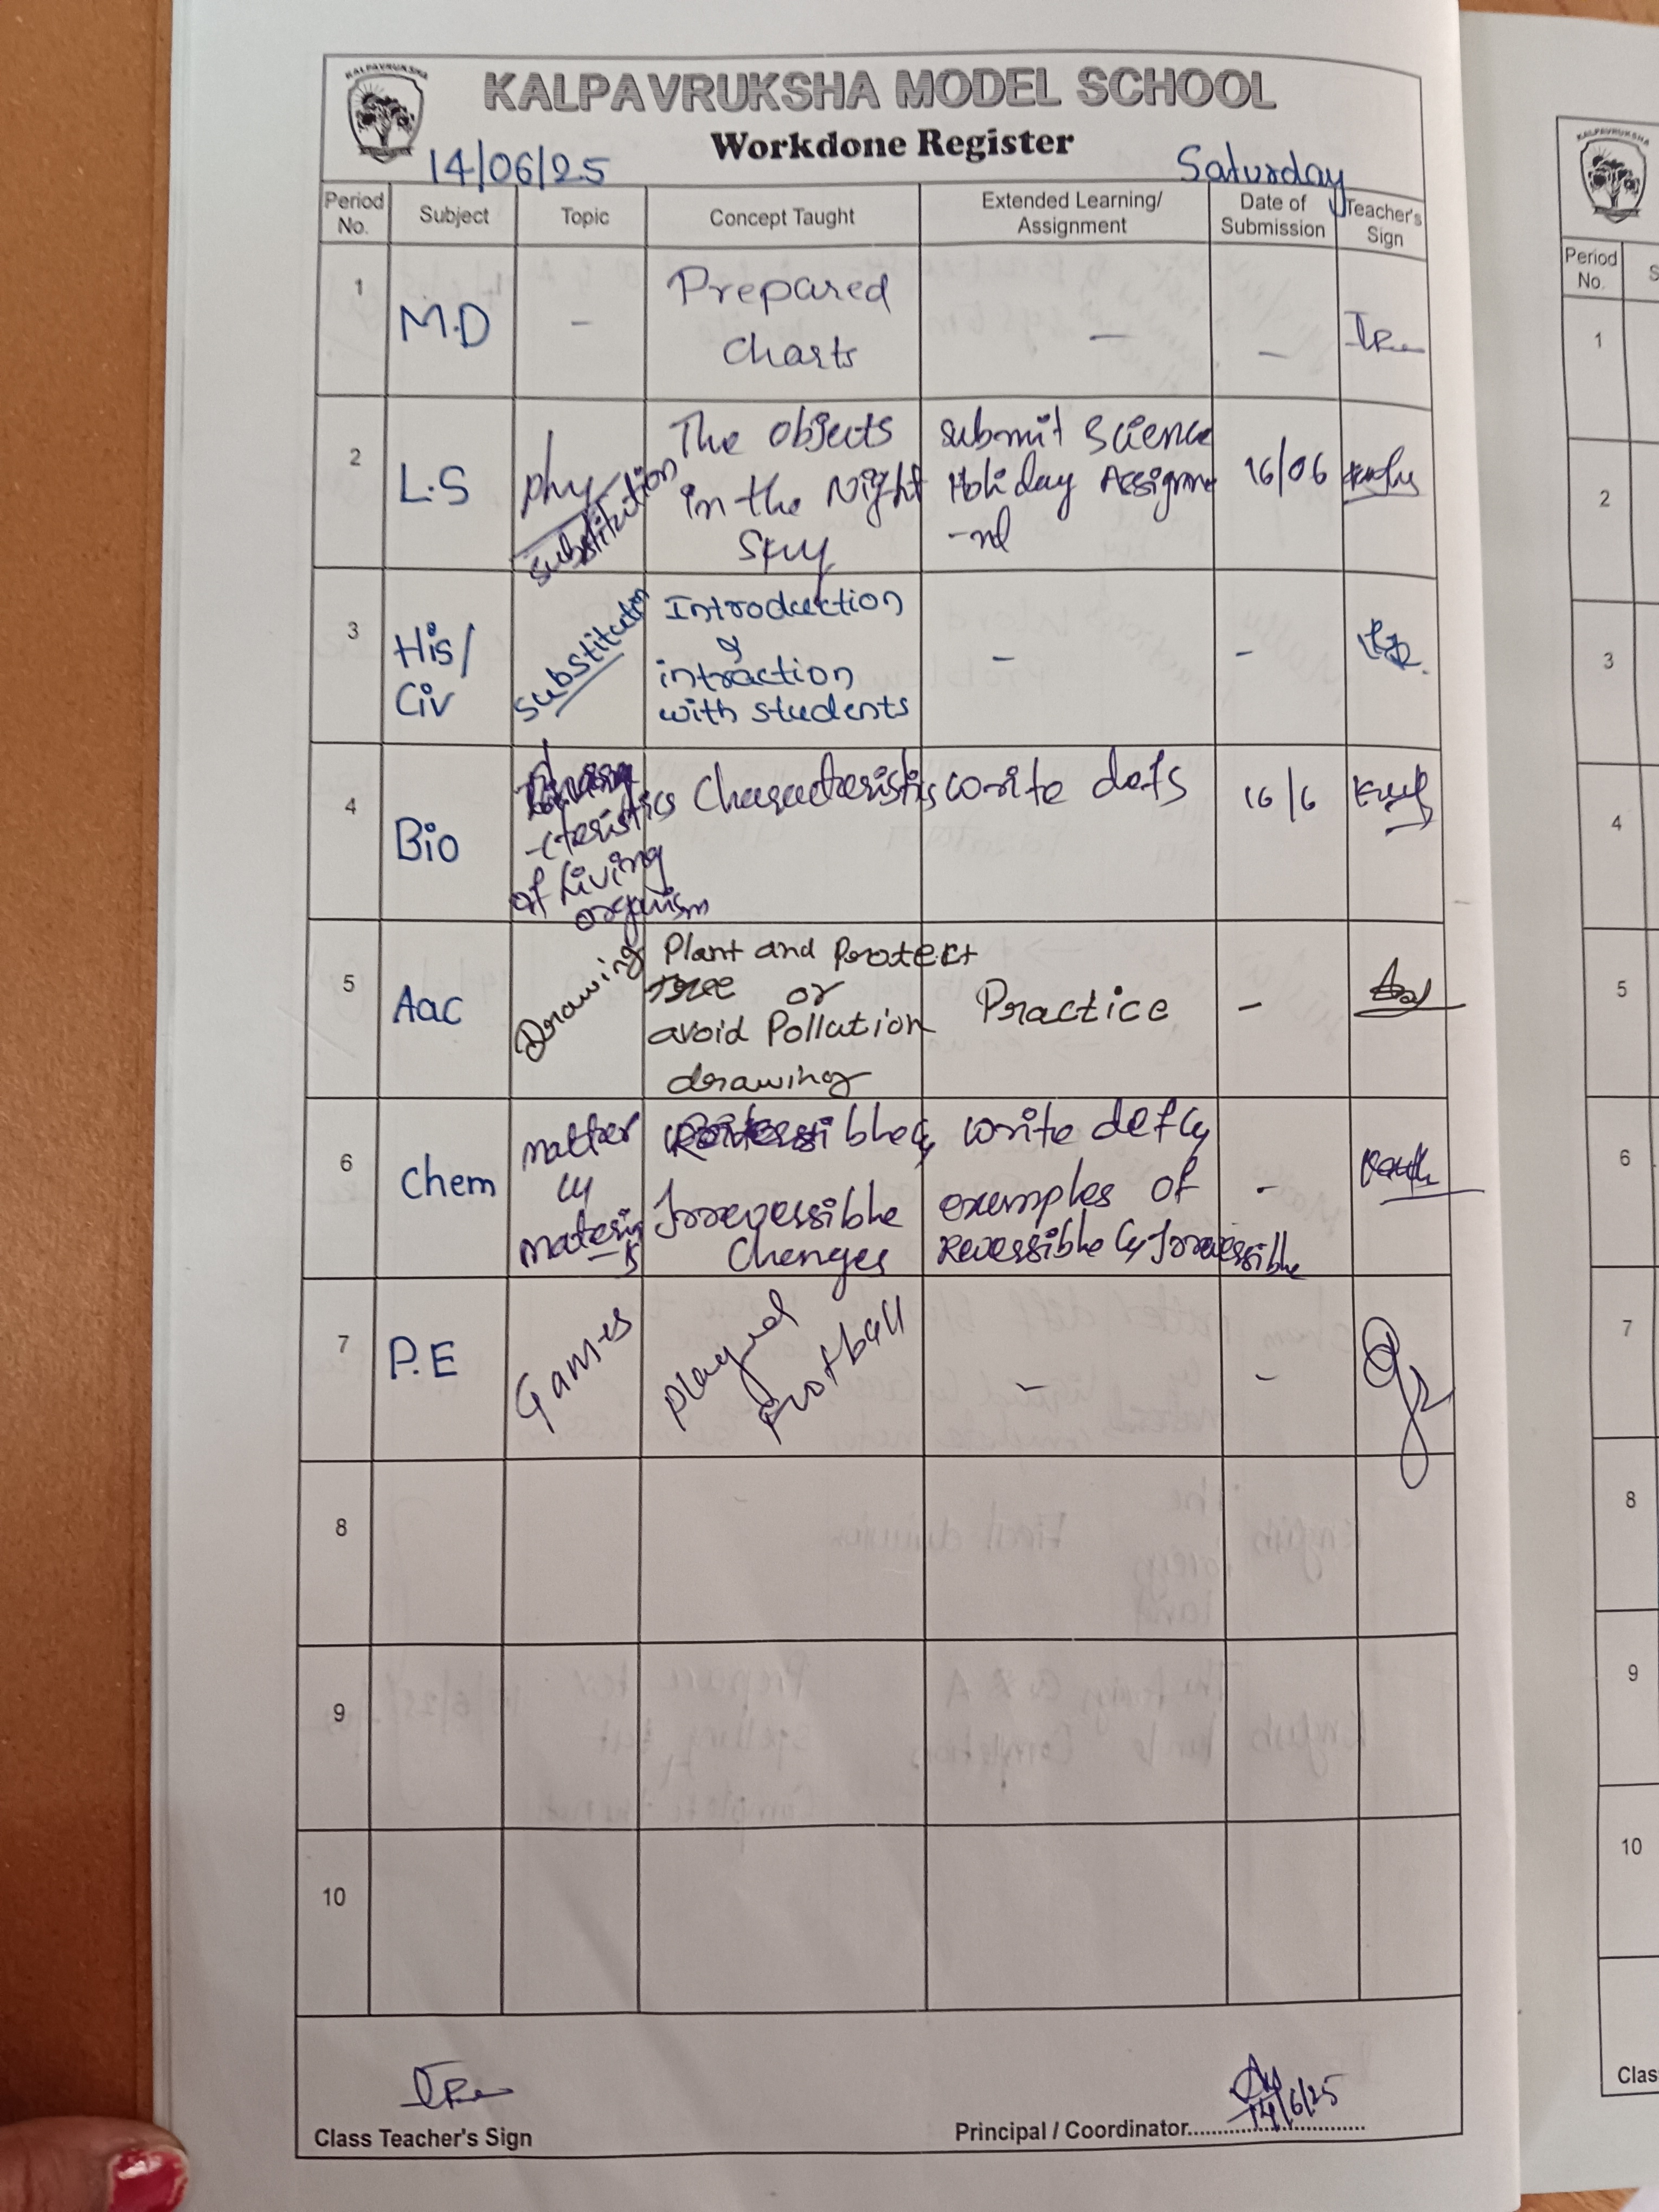 KALPAVRUKSHA
KALPAVRUKSHA MODEL SCHOOL
Workdone Register
14/06/25 Saturday
Period No. Subject Topic Concept Taught Extended Learning/ Assignment Date of Submission Teacher's Sign
1 M.D - Prepared charts - -
2 L.S phy substitution The objects in the Night Sky submit Science Holiday Assignme -nt 16/06
3 His/ Civ Substitution Introduction & intraction with students - -
4 Bio -cteristics of Living organism Characteristics write defs 16/6
5 Aac Drawing Plant and Protect tree or avoid Pollution drawing Practice -
6 Chem matter & materials Irrevessible Chenges write def & exemples of Revessible & Irrevessible -
7 P.E Games played football - -
8
9
10
Class Teacher's Sign
Principal / Coordinator..................
14/6/25
KALPAVRUKSHA
Period No. S
1
2
3
4
5
6
7
8
9
10
Clas